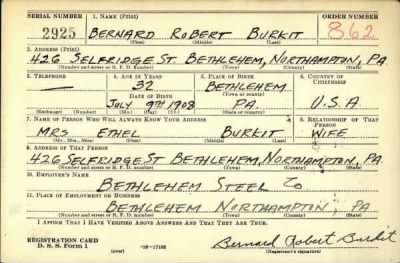 SERIAL NUMBER 1. NAME (Print) ORDER NUMBER
2925 BERNARD ROBERT BURKIT 862
(First) (Middle) (Last)
2. ADDRESS (Print)
426 SELFRIDGE ST. BETHLEHEM, NORTHAMPTON, PA
(Number and street or R. F. D. number) (Town) (County) (State)
3. TELEPHONE 4. AGE IN YEARS 5. PLACE OF BIRTH 6. COUNTRY OF CITIZENSHIP
— 32 BETHLEHEM
DATE OF BIRTH (Town or county)
JULY 9TH 1908 PA. U.S.A.
(Exchange) (Number) (Mo.) (Day) (Yr.) (State or country)
7. NAME OF PERSON WHO WILL ALWAYS KNOW YOUR ADDRESS 8. RELATIONSHIP OF THAT PERSON
MRS ETHEL BURKIT WIFE
(Mr., Mrs., Miss) (First) (Middle) (Last)
9. ADDRESS OF THAT PERSON
426 SELFRIDGE ST BETHLEHEM, NORTHAMPTON, PA
(Number and street or R. F. D. number) (Town) (County) (State)
10. EMPLOYER'S NAME
BETHLEHEM STEEL CO
11. PLACE OF EMPLOYMENT OR BUSINESS
BETHLEHEM NORTHAMPTON, PA
(Number and street or R. F. D. number) (Town) (County) (State)
I AFFIRM THAT I HAVE VERIFIED ABOVE ANSWERS AND THAT THEY ARE TRUE.
REGISTRATION CARD
D. S. S. Form 1 (over) Bernard Robert Burkit
(Registrant's signature)